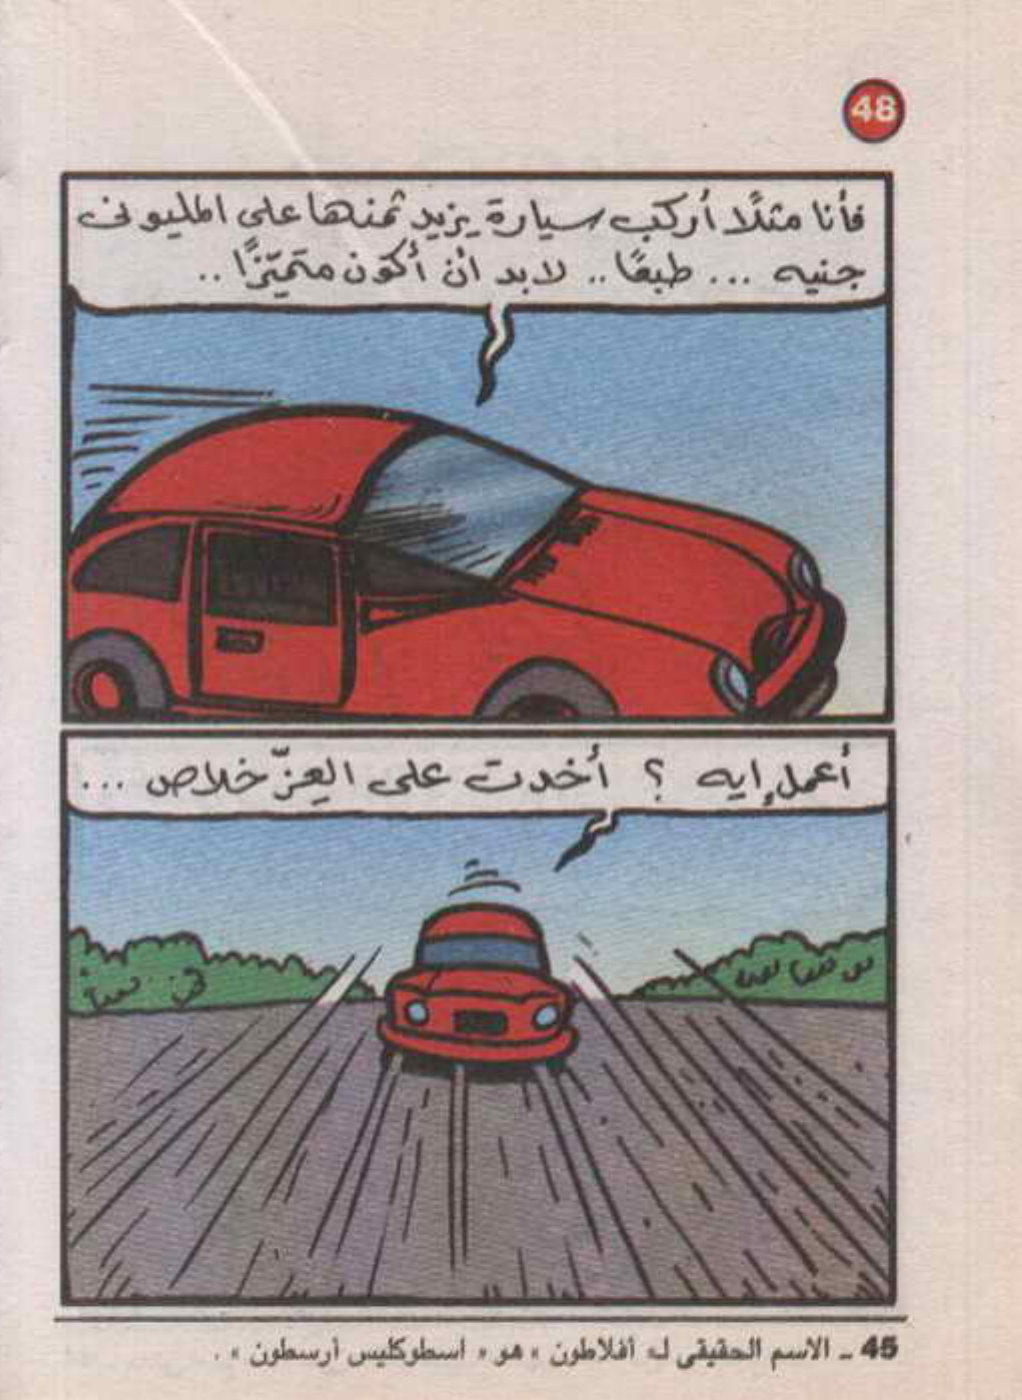 48
فأنا مثلًا أركب سيارة يزيد ثمنها على المليونى
جنيه ... طبعًا .. لابد أن أكون متميّزًا ..
أعمل إيه ؟ أخدت على العزّ خلاص ...
45 ـ الاسم الحقيقى لـ « أفلاطون » هو « اسطوكليس أرسطون » .